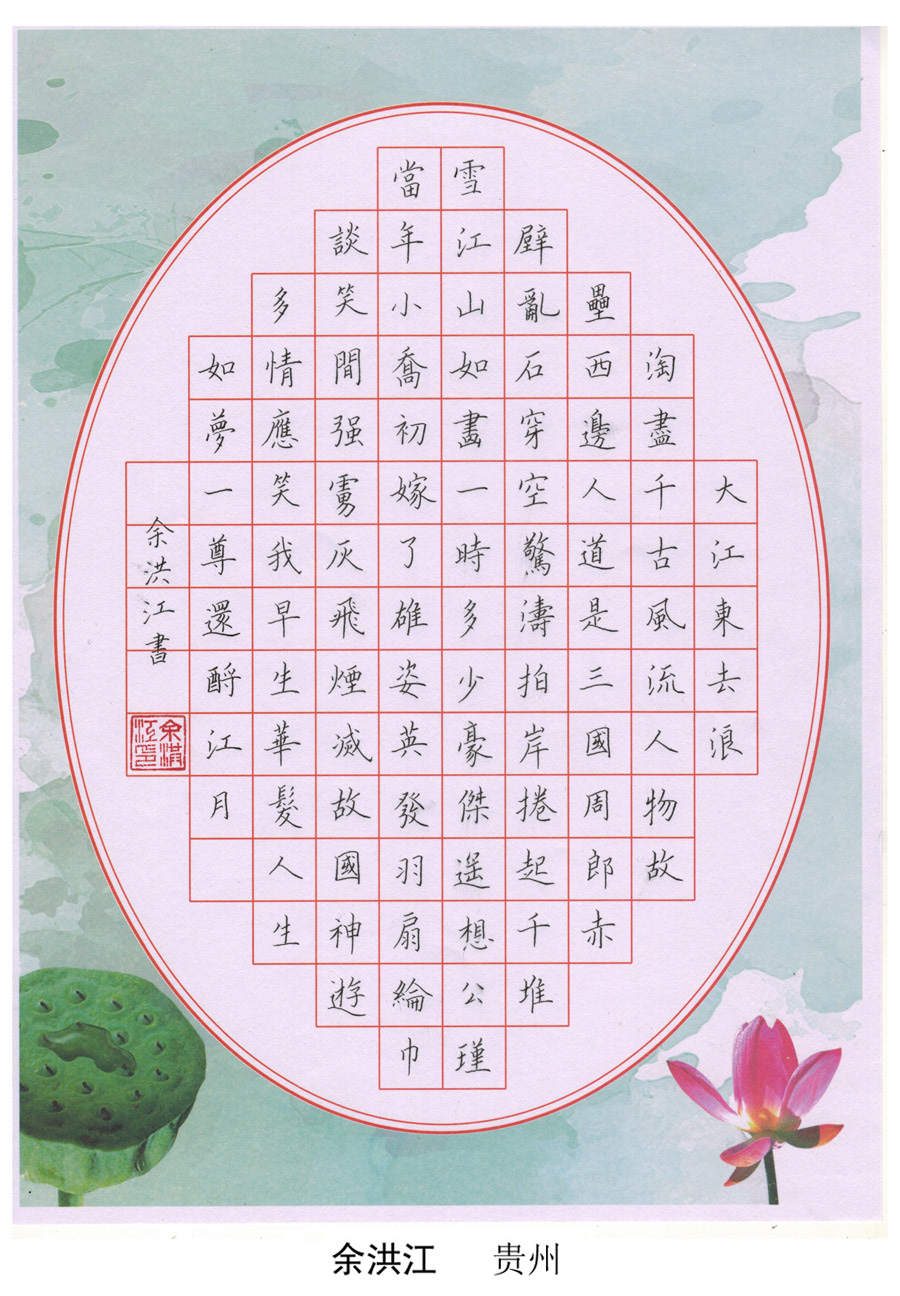 大江東去浪
淘盡千古風流人物故
壘西邊人道是三國周郎赤
壁亂石穿空驚濤拍岸捲起千堆
雪江山如畫一時多少豪傑遥想公瑾
當年小喬初嫁了雄姿英發羽扇綸巾
談笑間强虜灰飛煙滅故國神遊
多情應笑我早生華髮人生
如夢一尊還酹江月
余洪江書
余洪江印
余洪江 贵州